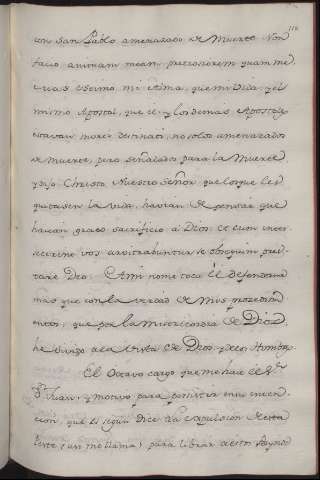 con San Pablo amenazado de Muerte Non
facio animam meam pretiosiorem quam me
mas estimo mi Alma, que mi Vida: y el
mismo Apostol, que el y los demas Apostoles
estavan morti destinati, no solos amenazados
de muerte, pero señalados para la Muerte,
y dijo Christo Nuestro Señor que los que les
quitasen la vida, havian de pensar que
hacian grato sacrificio a Dios, et cum inter
fecerint vos arbitrabuntur se obsequium pres
tare Deo. A mi no me toca el defenderme
mas que con la verdad de mis procedim
entos, que por la Misericordia de Dios,
he vivido a la Vista de Dios, y de los Hombres.
El Octavo cargo que me hace el Sr.
Dn. Juan, y motivo para persistir en su inten
cion, que es segun dice la expulsion de esta
Peste (asi me llama) para librar a estos Reynos